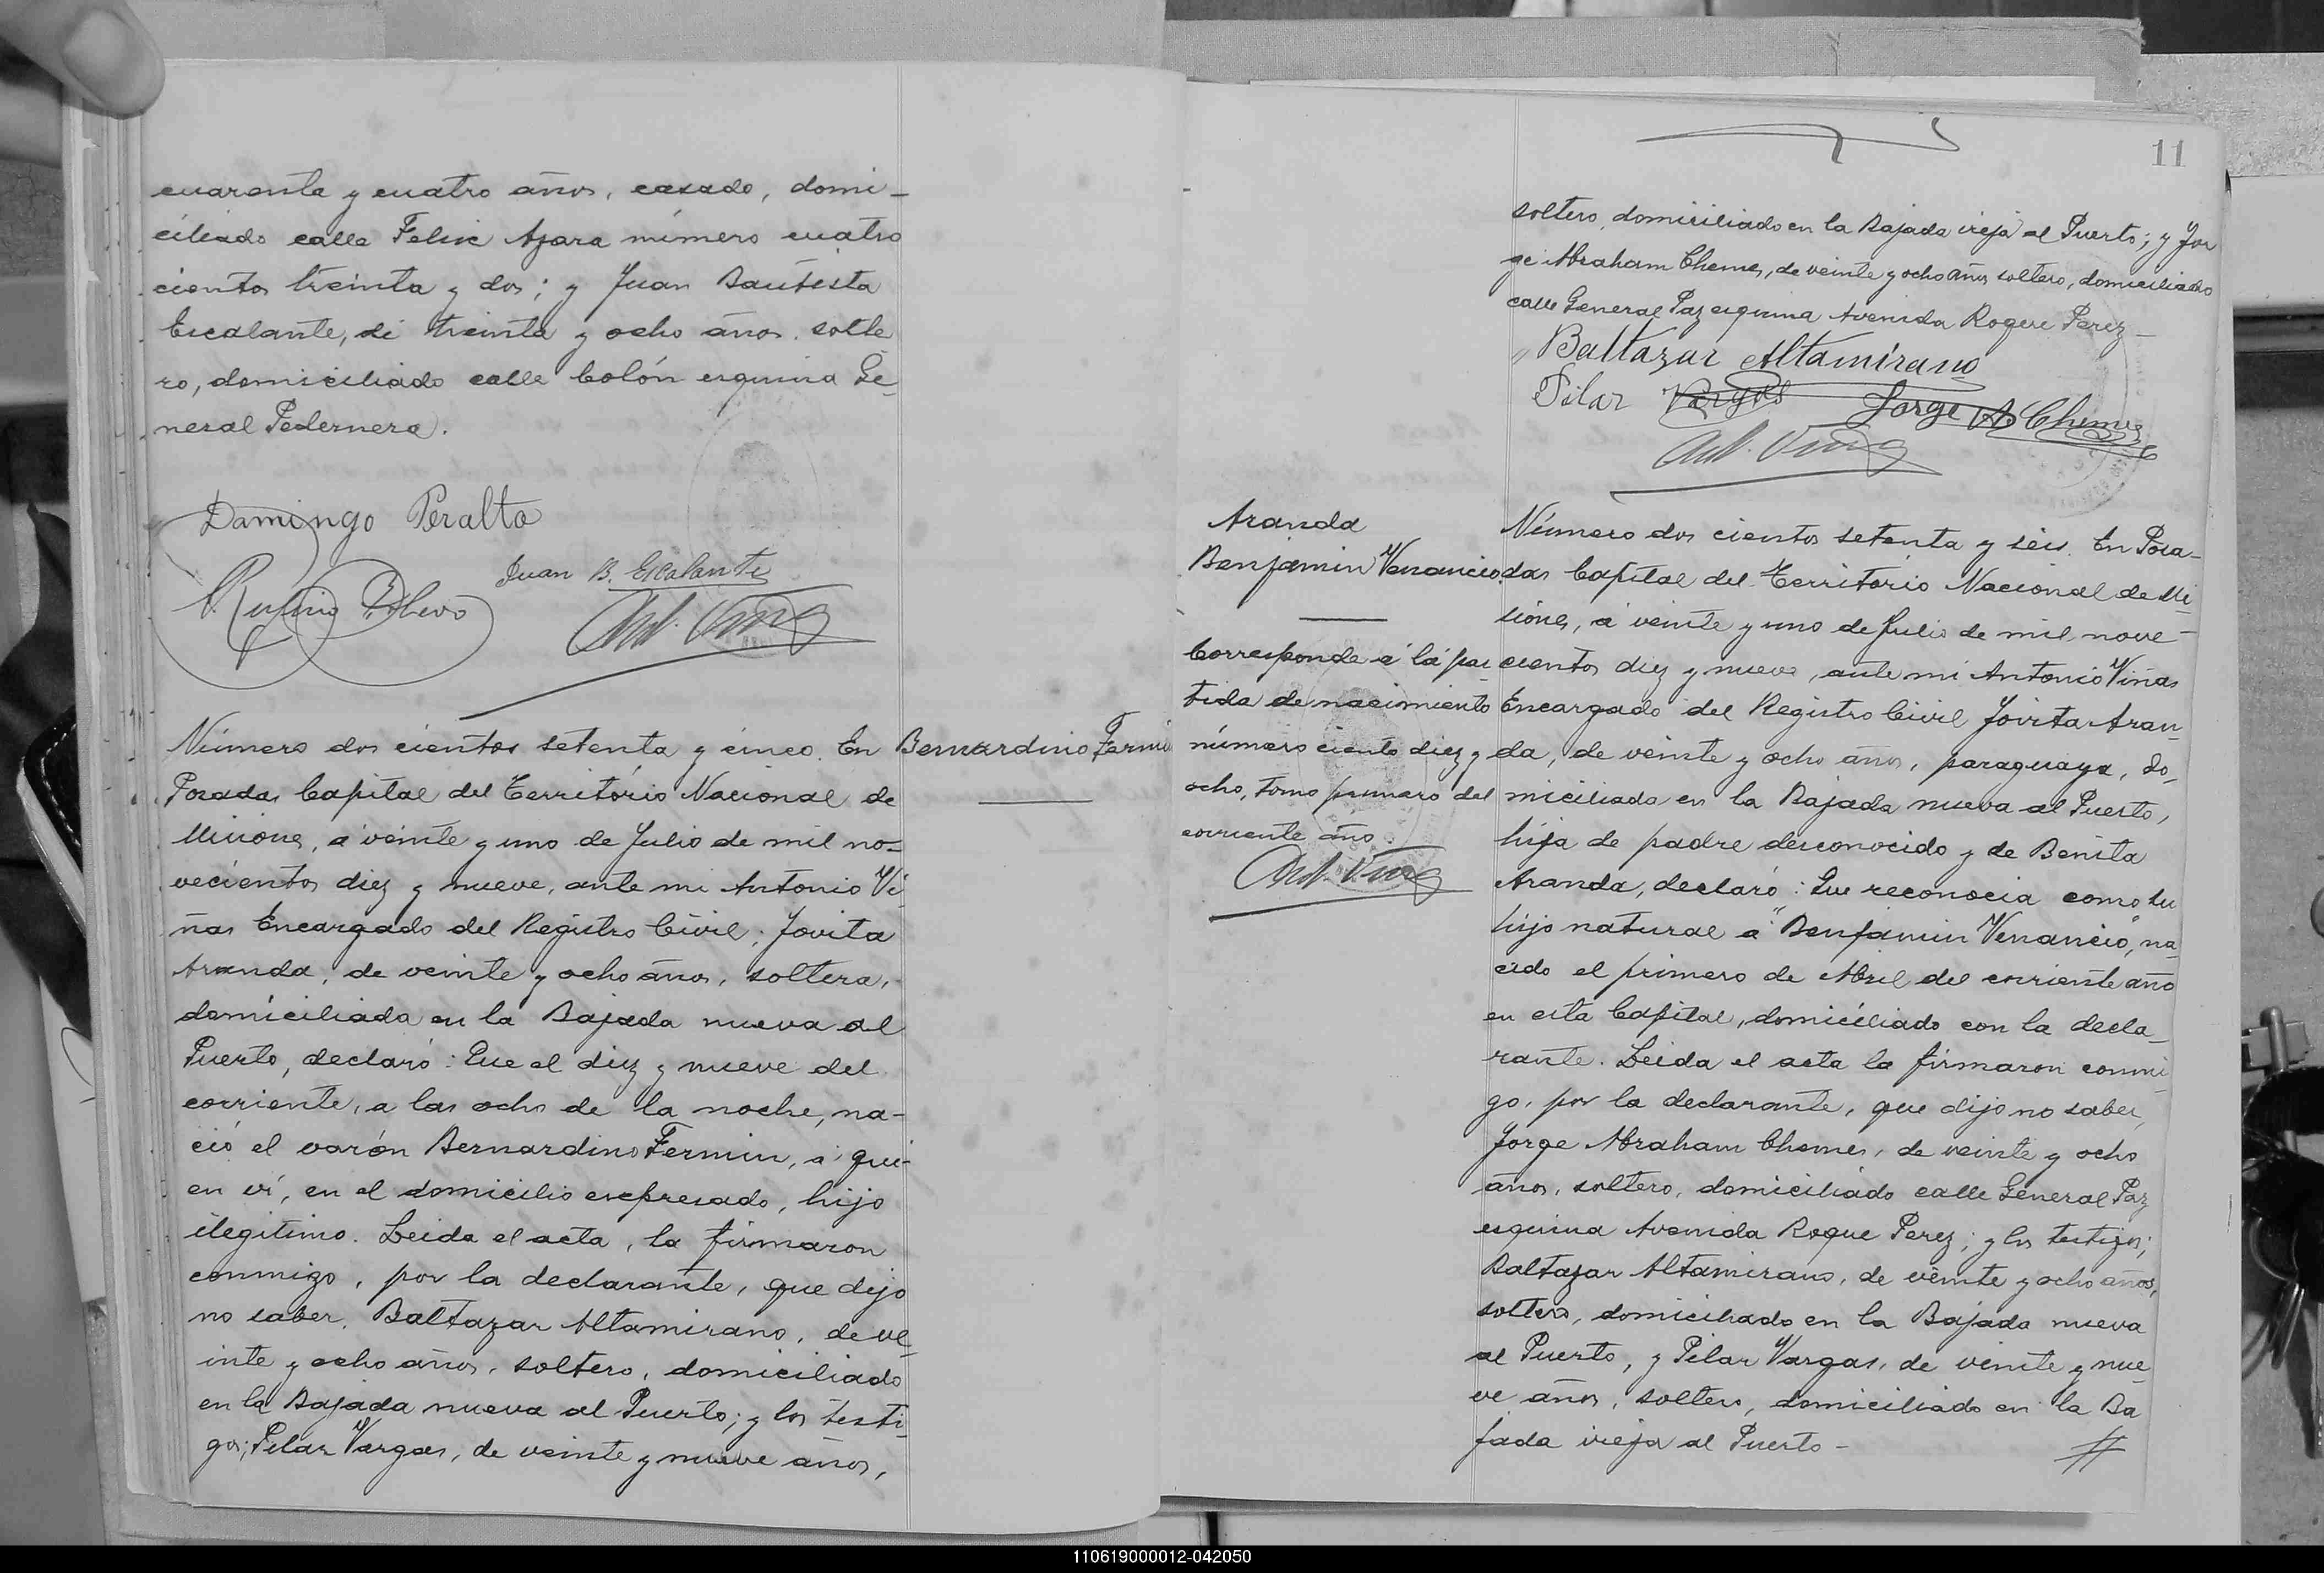 cuarenta y cuatro años, casado, domi-
ciliado calle Felix Azara número cuatro
cientos treinta y dos; y Juan Bautista
Escalante, de treinta y ocho años, solte
ro, domiciliado calle Colón esquina Ge-
neral Pedernera.
Domingo Peralta
Juan B. Escalante
Ant. Viñas
Número dos cientos setenta y cinco. En
Posadas Capital del Territorio Nacional de
Misiones, a veinte y uno de Julio de mil no-
vecientos diez y nueve, ante mi Antonio Vi-
ñas Encargado del Registro Civil; Jovita
Aranda, de veinte y ocho años, soltera,
domiciliada en la Bajada nueva al
Puerto, declaró: Que el diez y nueve del
corriente, a las ocho de la noche, na-
ció el varón Bernardino Fermin, a qui-
en ví, en el domicilio expresado, hijo
ilegitimo. Leida el acta, la firmaron
conmigo, por la declarante, que dijo
no saber, Baltazar Altamirano, de ve-
inte y ocho años, soltero, domiciliado
en la Bajada nueva al Puerto; y los testi-
gos; Pilar Vargas, de veinte y nueve años,
Bernardino Fermin
11
soltero, domiciliado en la Bajada vieja al Puerto; y Jor
ge Abraham Chemes, de veinte y ocho años soltero, domiciliado
calle General Paz esquina Avenida Roque Perez-
Baltazar Altamirano
Pilar Vargas Jorge A. Chemes
Ant. Viñas
Aranda
Benjamin Venancio
Corresponde á la par
tida de nacimiento
número ciento diez y
ocho, tomo primero del
corriente año.
Ant. Viñas
Número dos cientos setenta y seis. En Posa-
das Capital del Territorio Nacional de Mi-
siones, a veinte y uno de Julio de mil nove-
cientos diez y nueve, ante mi Antonio Viñas
Encargado del Registro Civil Jovita Aran-
da, de veinte y ocho años, paraguaya, do-
miciliada en la Bajada nueva al Puerto,
hija de padre desconocido y de Benita
Aranda, declaró: Que reconocia como su
hijo natural a "Benjamin Venancio", na-
cido el primero de Abril del corriente año
en esta Capital, domiciliado con la decla-
rante. Leida el acta la firmaron conmi-
go, por la declarante, que dijo no saber,
Jorge Abraham Chemes, de veinte y ocho
años, soltero, domiciliado calle General Paz
esquina Avenida Roque Perez; y los testigos;
Baltazar Altamirano, de veinte y ocho años,
soltero, domiciliado en la Bajada nueva
al Puerto, y Pilar Vargas, de veinte y nue-
ve años, soltero, domiciliado en la Ba
jada vieja al Puerto-
110619000012-042050